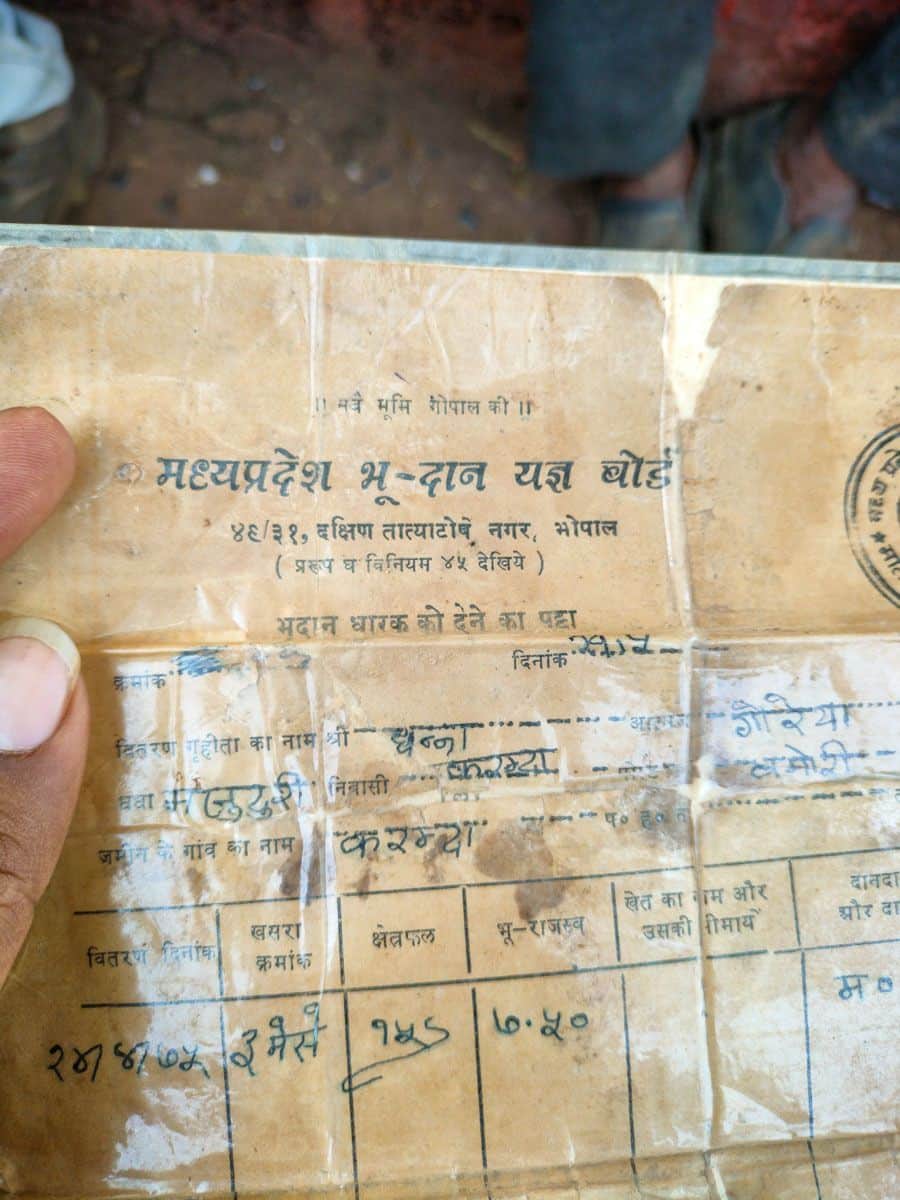 ॥ सबै भूमि गोपाल की ॥
मध्यप्रदेश भू-दान यज्ञ बोर्ड
४६/३१, दक्षिण तात्याटोपे नगर, भोपाल
( प्ररूप घ विनियम ४५ देखिये )
भूदान धारक को देने का पट्टा
क्रमांक दिनांक
वितरण गृहीता का नाम श्री धन्ना आत्मज गोरेया
धंधा मजुदुरी निवासी करमदा
जमीन के गांव का नाम करमदा प० ह० न
वितरण दिनांक खसरा क्रमांक क्षेत्रफल भू-राजस्व खेत का नाम और उसकी सीमायें दानदा और दा
२४/४/७५ ३ मेसे १५ ७.५० म०
मध्य प्रदे